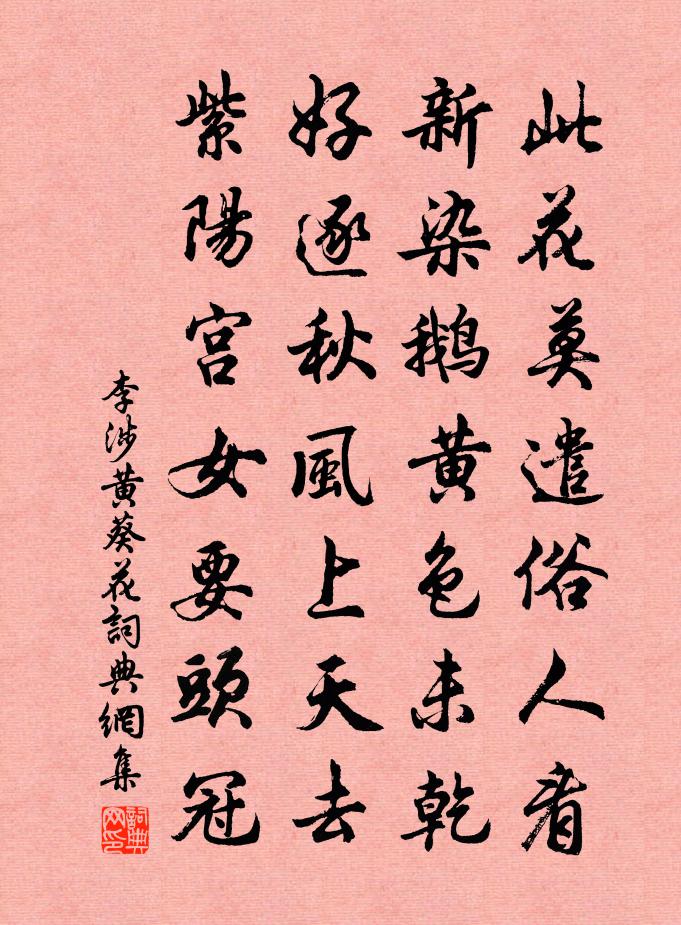 此花莫遣俗人看
新染鹅黄色未乾
好逐秋風上天去
紫陽宫女要頭冠
李涉黄葵花詞典網集
詞典网印